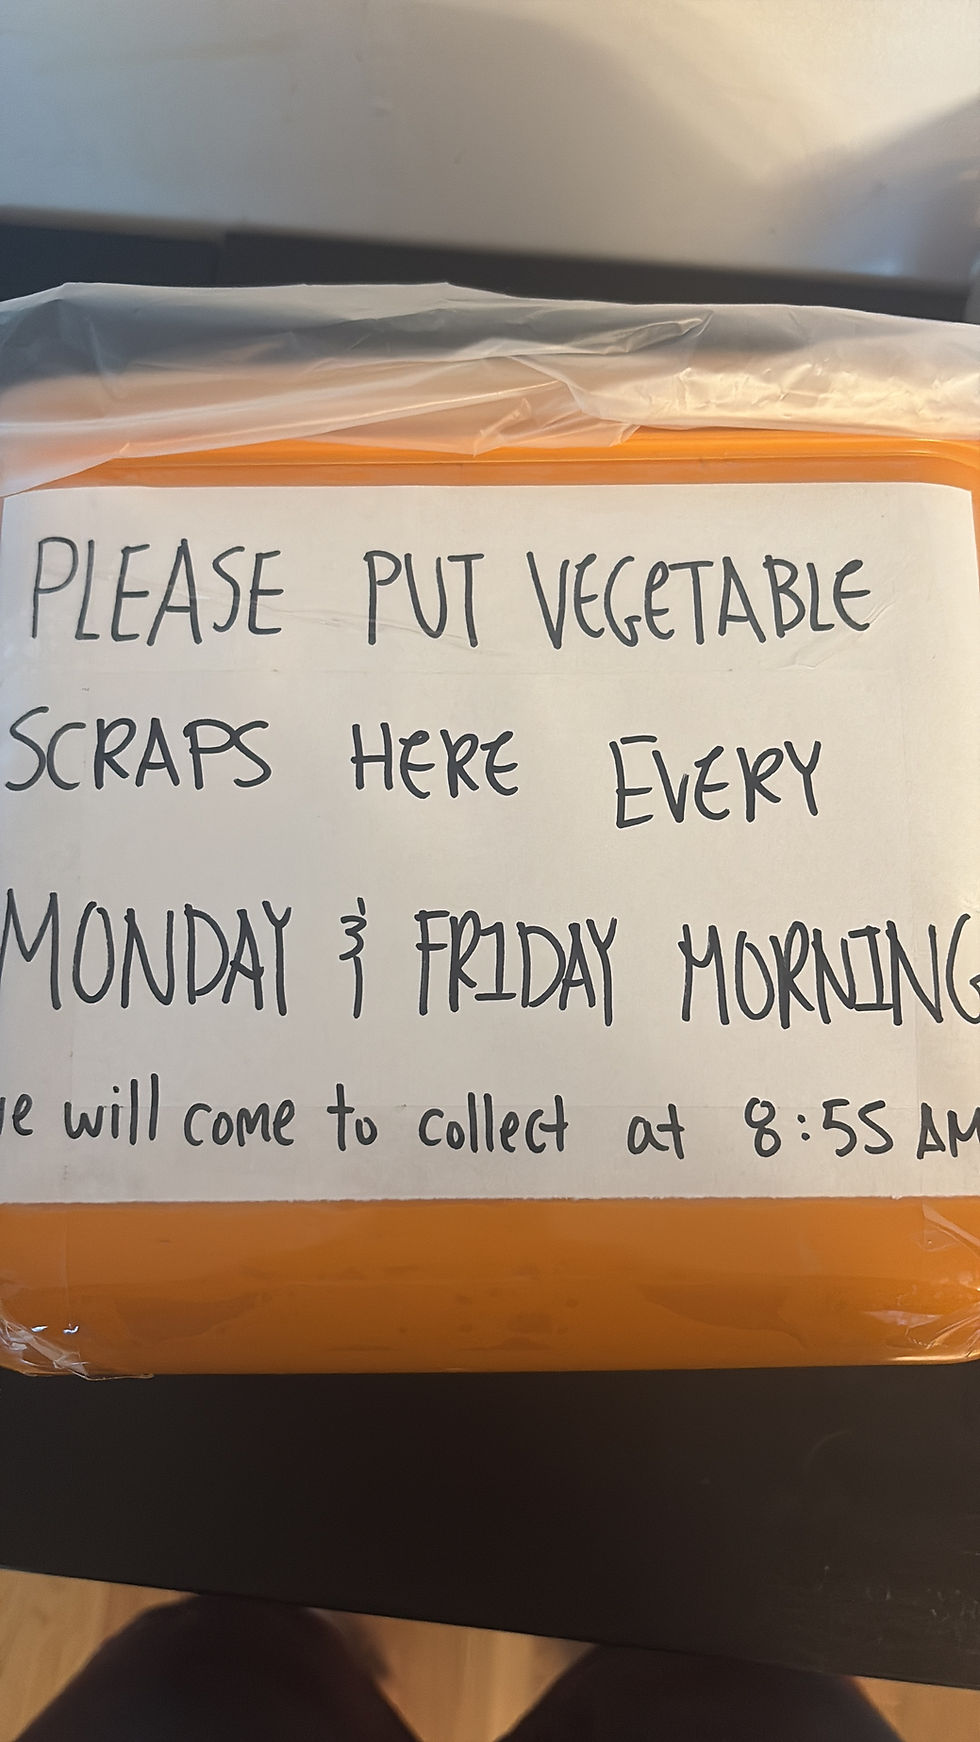 PLEASE PUT VEGETABLE
SCRAPS HERE EVERY
MONDAY & FRIDAY MORNING
we will come to collect at 8:55 AM